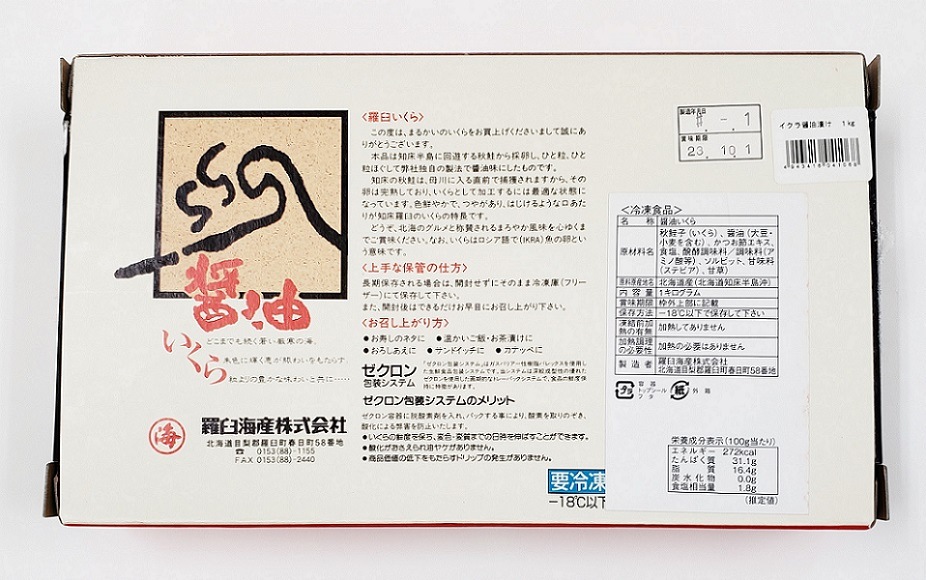 醤油
いくら
どこまでも続く蒼い厳寒の海、
朱色に輝く恵が賑わいをもたらす、
粒よりの豊かな味わいと共に……
海
羅臼海産株式会社
北海道目梨郡羅臼町春日町58番地
☎ 0153(88)-1155
FAX 0153(88)-2440
〈羅臼いくら〉
この度は、まるかいのいくらをお買上げくださいまして誠にあ
りがとうございます。
本品は知床半島に回遊する秋鮭から採卵し、ひと粒、ひと
粒ほぐして弊社独自の製法で醤油味にしたものです。
知床の秋鮭は、母川に入る直前で捕獲されますから、その
卵は完熟しており、いくらとして加工するには最適な状態に
なっています。色鮮やかで、つやがあり、はじけるような口あた
りが知床羅臼のいくらの特長です。
どうぞ、北海のグルメと称賛されるまろやかな風味を心ゆくま
でご賞味ください。なお、いくらはロシア語で(IKRA)魚の卵とい
う意味です。
〈上手な保管の仕方〉
長期保存される場合は、開封せずにそのまま冷凍庫(フリー
ザー)にて保存して下さい。
また、開封後はできるだけお早目にお召し上がり下さい。
〈お召し上がり方〉
●お寿しのネタに ●温かいご飯・お茶漬けに
●おろしあえに ●サンドイッチに ●カナッペに
ゼクロン
包装システム
「ゼクロン包装システム」はガスバリアー性樹脂バレックスを使用し
た生鮮食品包装システムです。当システムは深絞成型性の優れた
ゼクロンを使用した画期的なトレーパックシステムで、食品の鮮度保
持に特徴があります。
ゼクロン包装システムのメリット
ゼクロン容器に脱酸素剤を入れ、パックする事により、酸素を取りのぞき、
酸化による弊害を防止いたします。
●いくらの鮮度を保ち、変色・変質までの日時を伸ばすことができます。
●酸化がおさえられ油ヤケがありません。
●商品価値の低下をもたらすドリップの発生がありません。
要冷凍
−18℃以下
製造年月日
賞味期限
23.10.1
イクラ醤油漬け 1kg
<冷凍食品>
名称 醤油いくら
原材料名 秋鮭子(いくら)、醤油(大豆・
小麦を含む)、かつお節エキス、
食塩、醗酵調味料/調味料(ア
ミノ酸等)、ソルビット、甘味料
(ステビア)、甘草
原料原産地名 北海道産(北海道知床半島沖)
内容量 1キログラム
賞味期限 枠外上部に記載
保存方法 −18℃以下で保存して下さい
凍結前加熱の有無 加熱してありません
加熱調理の必要性 加熱の必要はありません
製造者 羅臼海産株式会社
北海道目梨郡羅臼町春日町58番地
プラ
容器
トップシール
フタ
紙
外箱
栄養成分表示(100g当たり)
エネルギー 272kcal
たんぱく質 31.1g
脂質 16.4g
炭水化物 0.0g
食塩相当量 1.8g
(推定値)